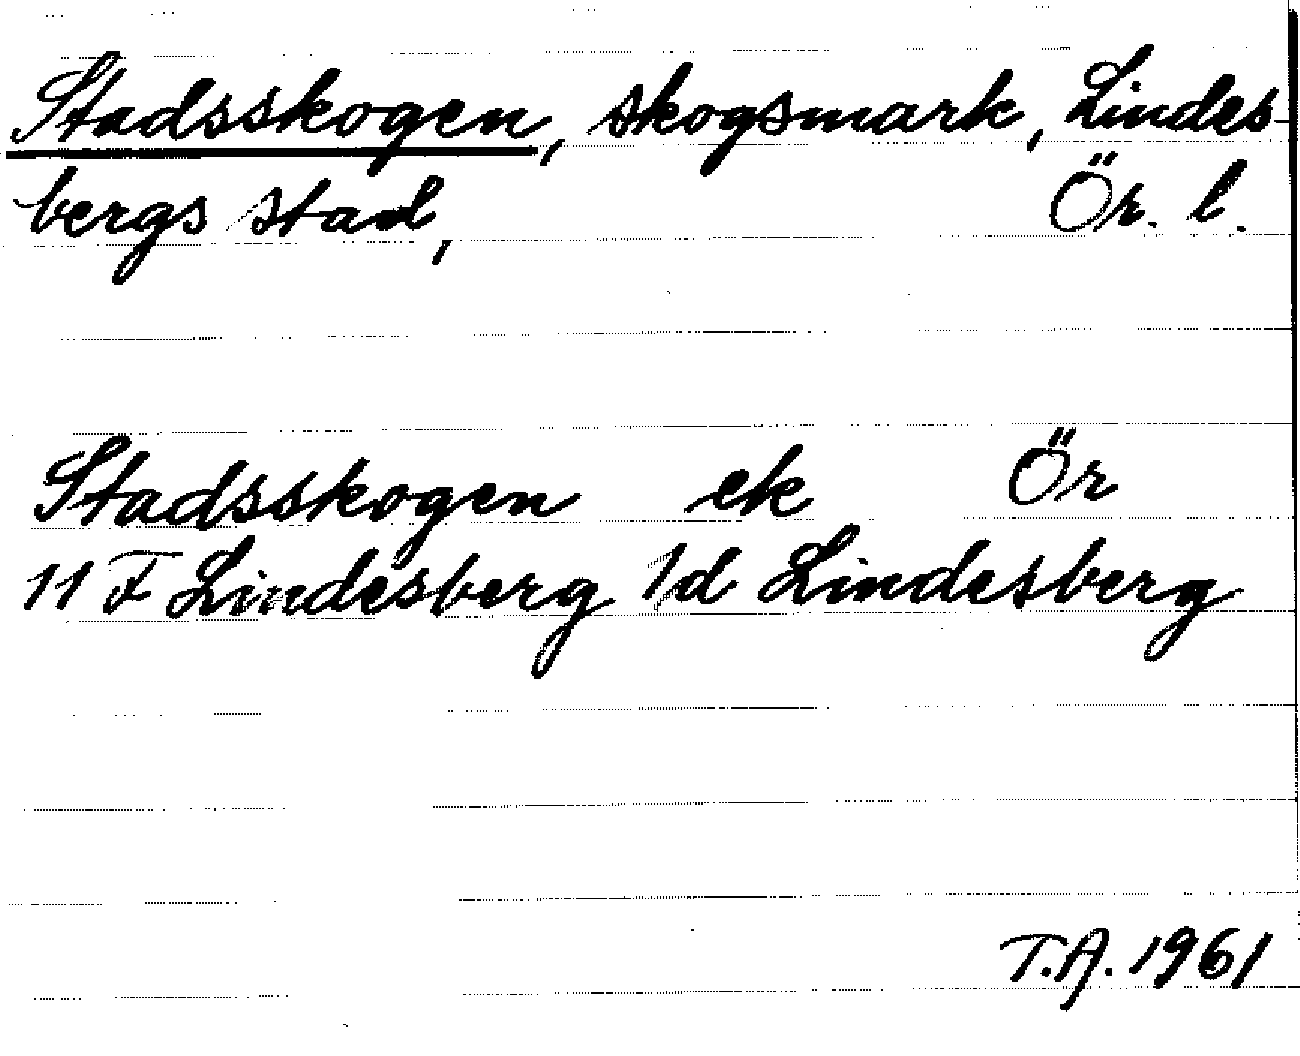 Stadsskogen, skogsmark, Lindes-
bergs stad, Ör. l.
Stadsskogen ek Ör
11 F Lindesberg 1d Lindesberg
T.A. 1961